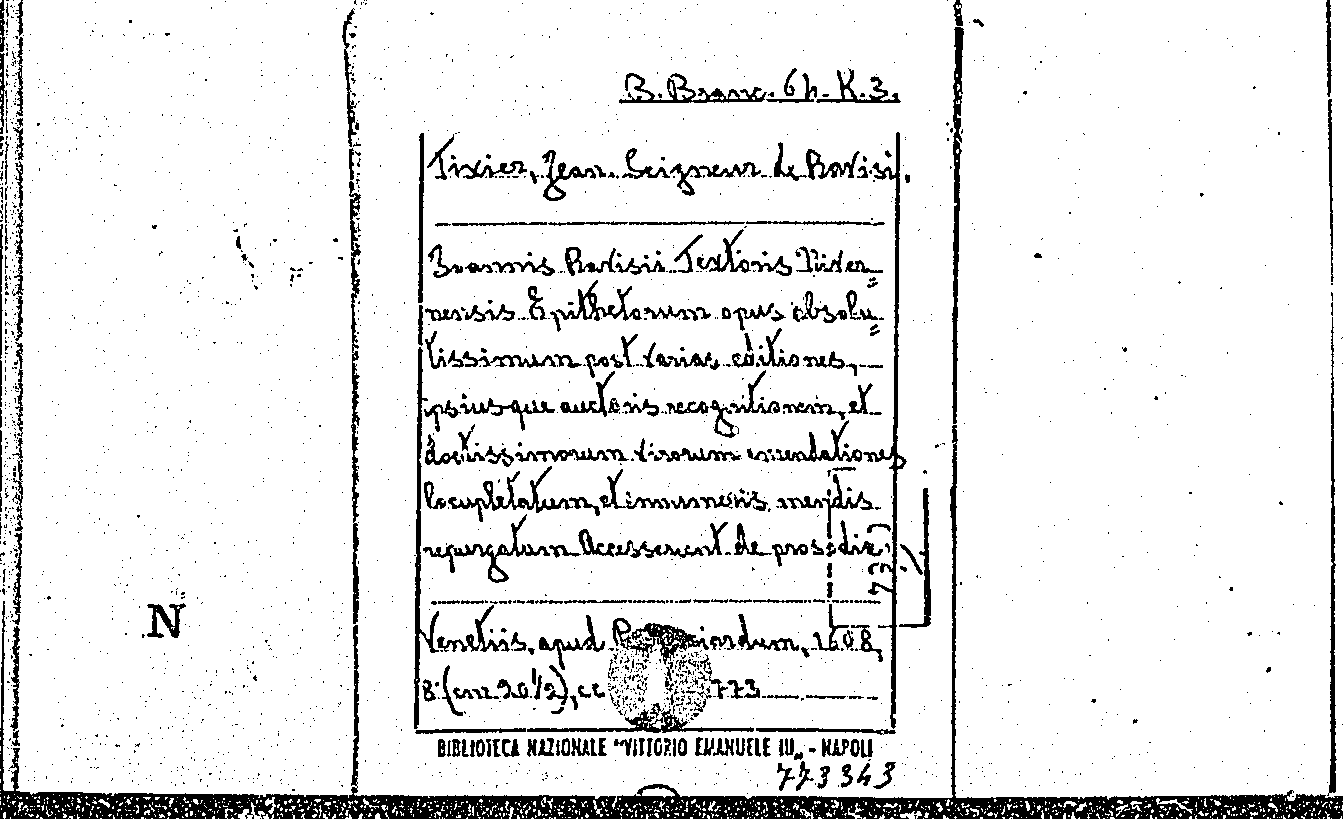 B. Branc. 64. K. 3.
Tixier, Jean. Seigneur de Ravisi.
Ioannis Ravisii Textoris Niver=
nensis Epithetorum opus absolu=
tissimum post varias editiones,
ipsiusque auctoris recognitionem, et
doctissimorum virorum emendationes
locupletatum, et innumeris mendis
repurgatum Accesserunt de prosodia
737
N
Venetiis, apud 1608,
8° (cm 20 1/2), cc 773
BIBLIOTECA NAZIONALE "VITTORIO EMANUELE III„ - NAPOLI
773343